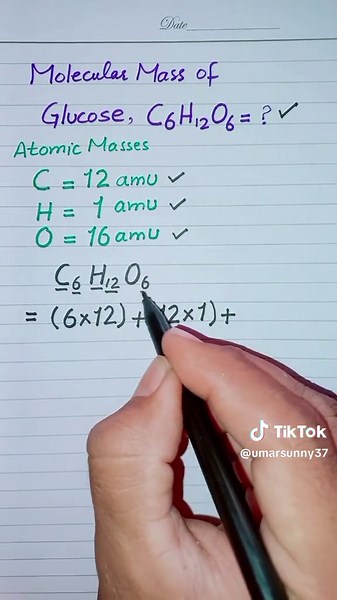 Date
Molecular Mass of
Glucose, C₆H₁₂O₆ = ? ✓
Atomic Masses
C = 12 amu ✓
H = 1 amu ✓
O = 16 amu ✓
C₆ H₁₂ O₆
= (6×12) + 2×1) +
TikTok
@umarsunny37